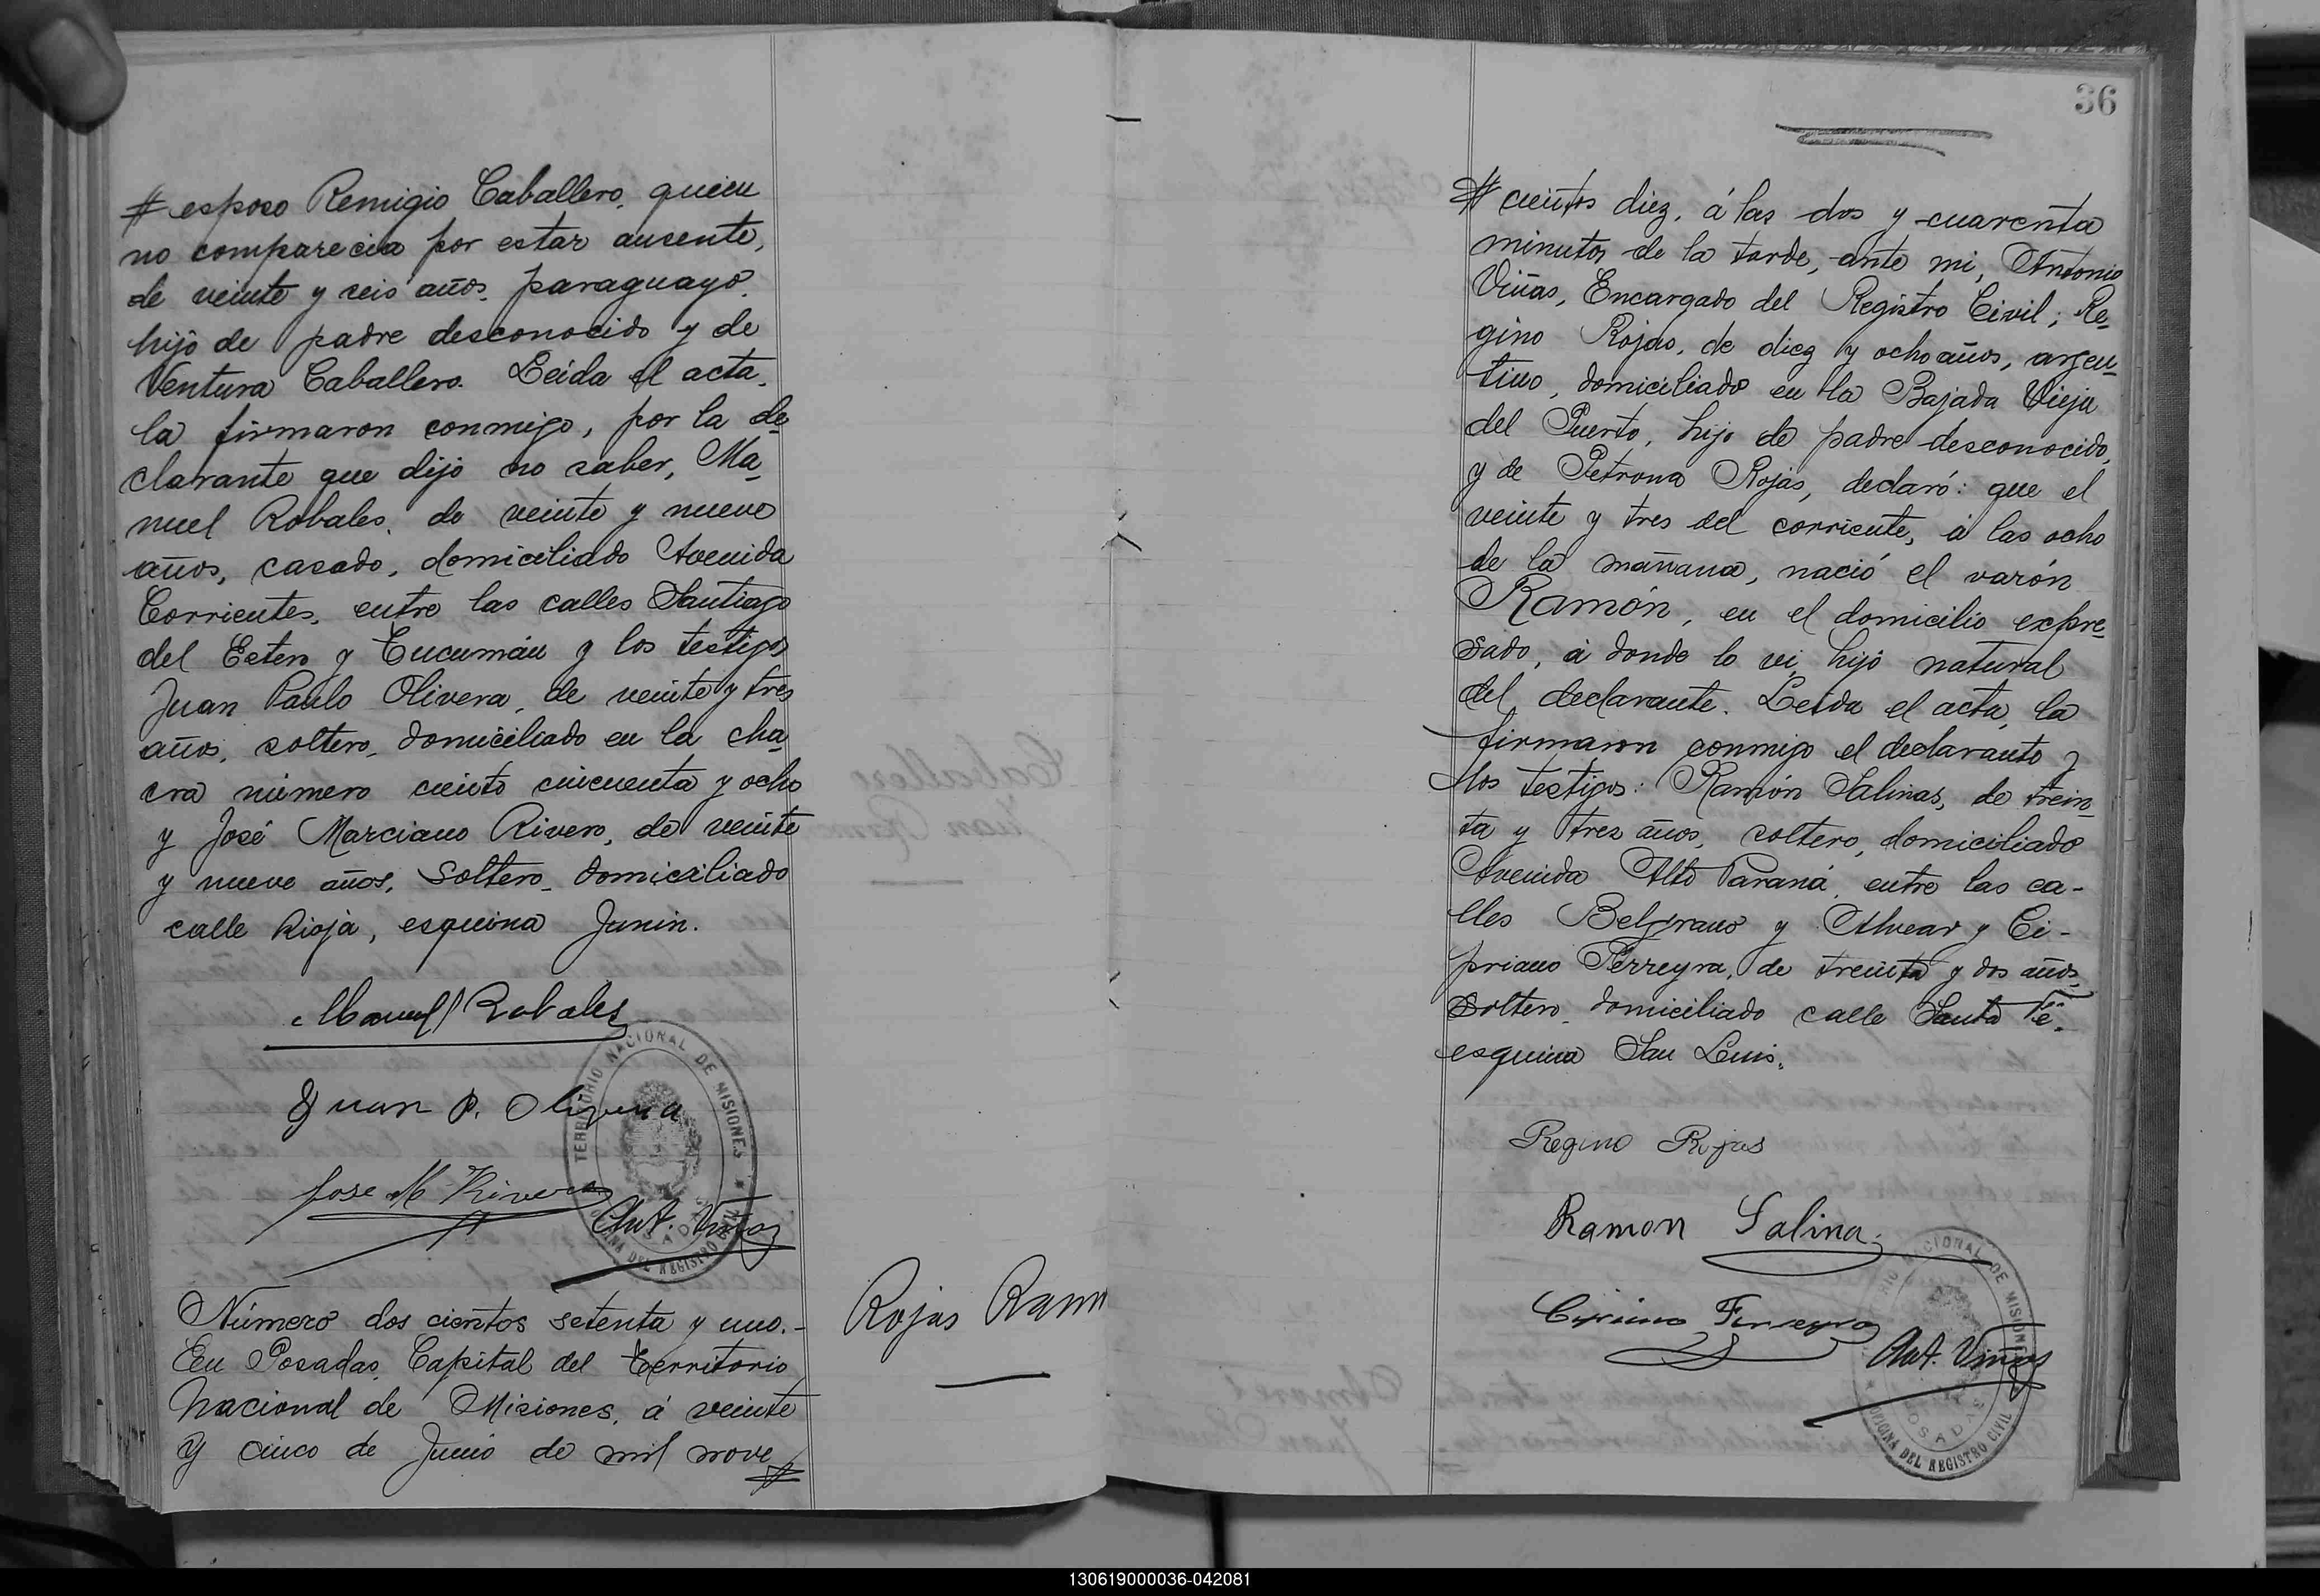 # esposo Remigio Caballero, quien
no comparecia por estar ausente,
de veinte y seis años, paraguayo,
hijo de padre desconocido y de
Ventura Caballero. Leida el acta,
la firmaron conmigo, por la de
clarante que dijo no saber, Ma
nuel Robales, de veinte y nueve
años, casado, domiciliado Avenida
Corrientes, entre las calles Santiago
del Estero y Tucumán y los testigos
Juan Paulo Olivera, de veinte y tres
años, soltero, domiciliado en la cha
cra número ciento cincuenta y ocho
y José Marciano Rivero, de veinte
y nueve años, soltero, domiciliado
calle Rioja, esquina Junin.
Manuel Robales
Juan P. Olivera
Jose M Rivero
Ant. Viñas
TERRITORIO NACIONAL DE MISIONES
OFICINA DEL REGISTRO CIVIL
POSADAS
Número dos cientos setenta y uno.-
En Posadas, Capital del Territorio
Nacional de Misiones, á veinte
y cinco de Junio de mil nove #
Rojas Ram
36
# cientos diez, á las dos y cuarenta
minutos de la tarde, ante mi, Antonio
Viñas, Encargado del Registro Civil; Re-
gino Rojas, de diez y ocho años, argen-
tino, domiciliado en la Bajada Vieja
del Puerto, hijo de padre desconocido,
y de Petrona Rojas, declaró: que el
veinte y tres del corriente, á las ocho
de la mañana, nació el varón
Ramón, en el domicilio expre-
sado, á donde lo vi, hijo natural
del declarante. Leida el acta, la
firmaron conmigo el declarante y
los testigos: Ramón Salinas, de trein
ta y tres años, soltero, domiciliado
Avenida Alto Paraná, entre las ca-
lles Belgrano y Alvear y Ci-
priano Ferreyra, de treinta y dos años,
soltero, domiciliado calle Santa Fé,
esquina San Luis.
Regino Rojas
Ramon Salina
Cipriano Ferreyra
Ant. Viñas
TERRITORIO NACIONAL DE MISIONES
OFICINA DEL REGISTRO CIVIL
POSADAS
130619000036-042081